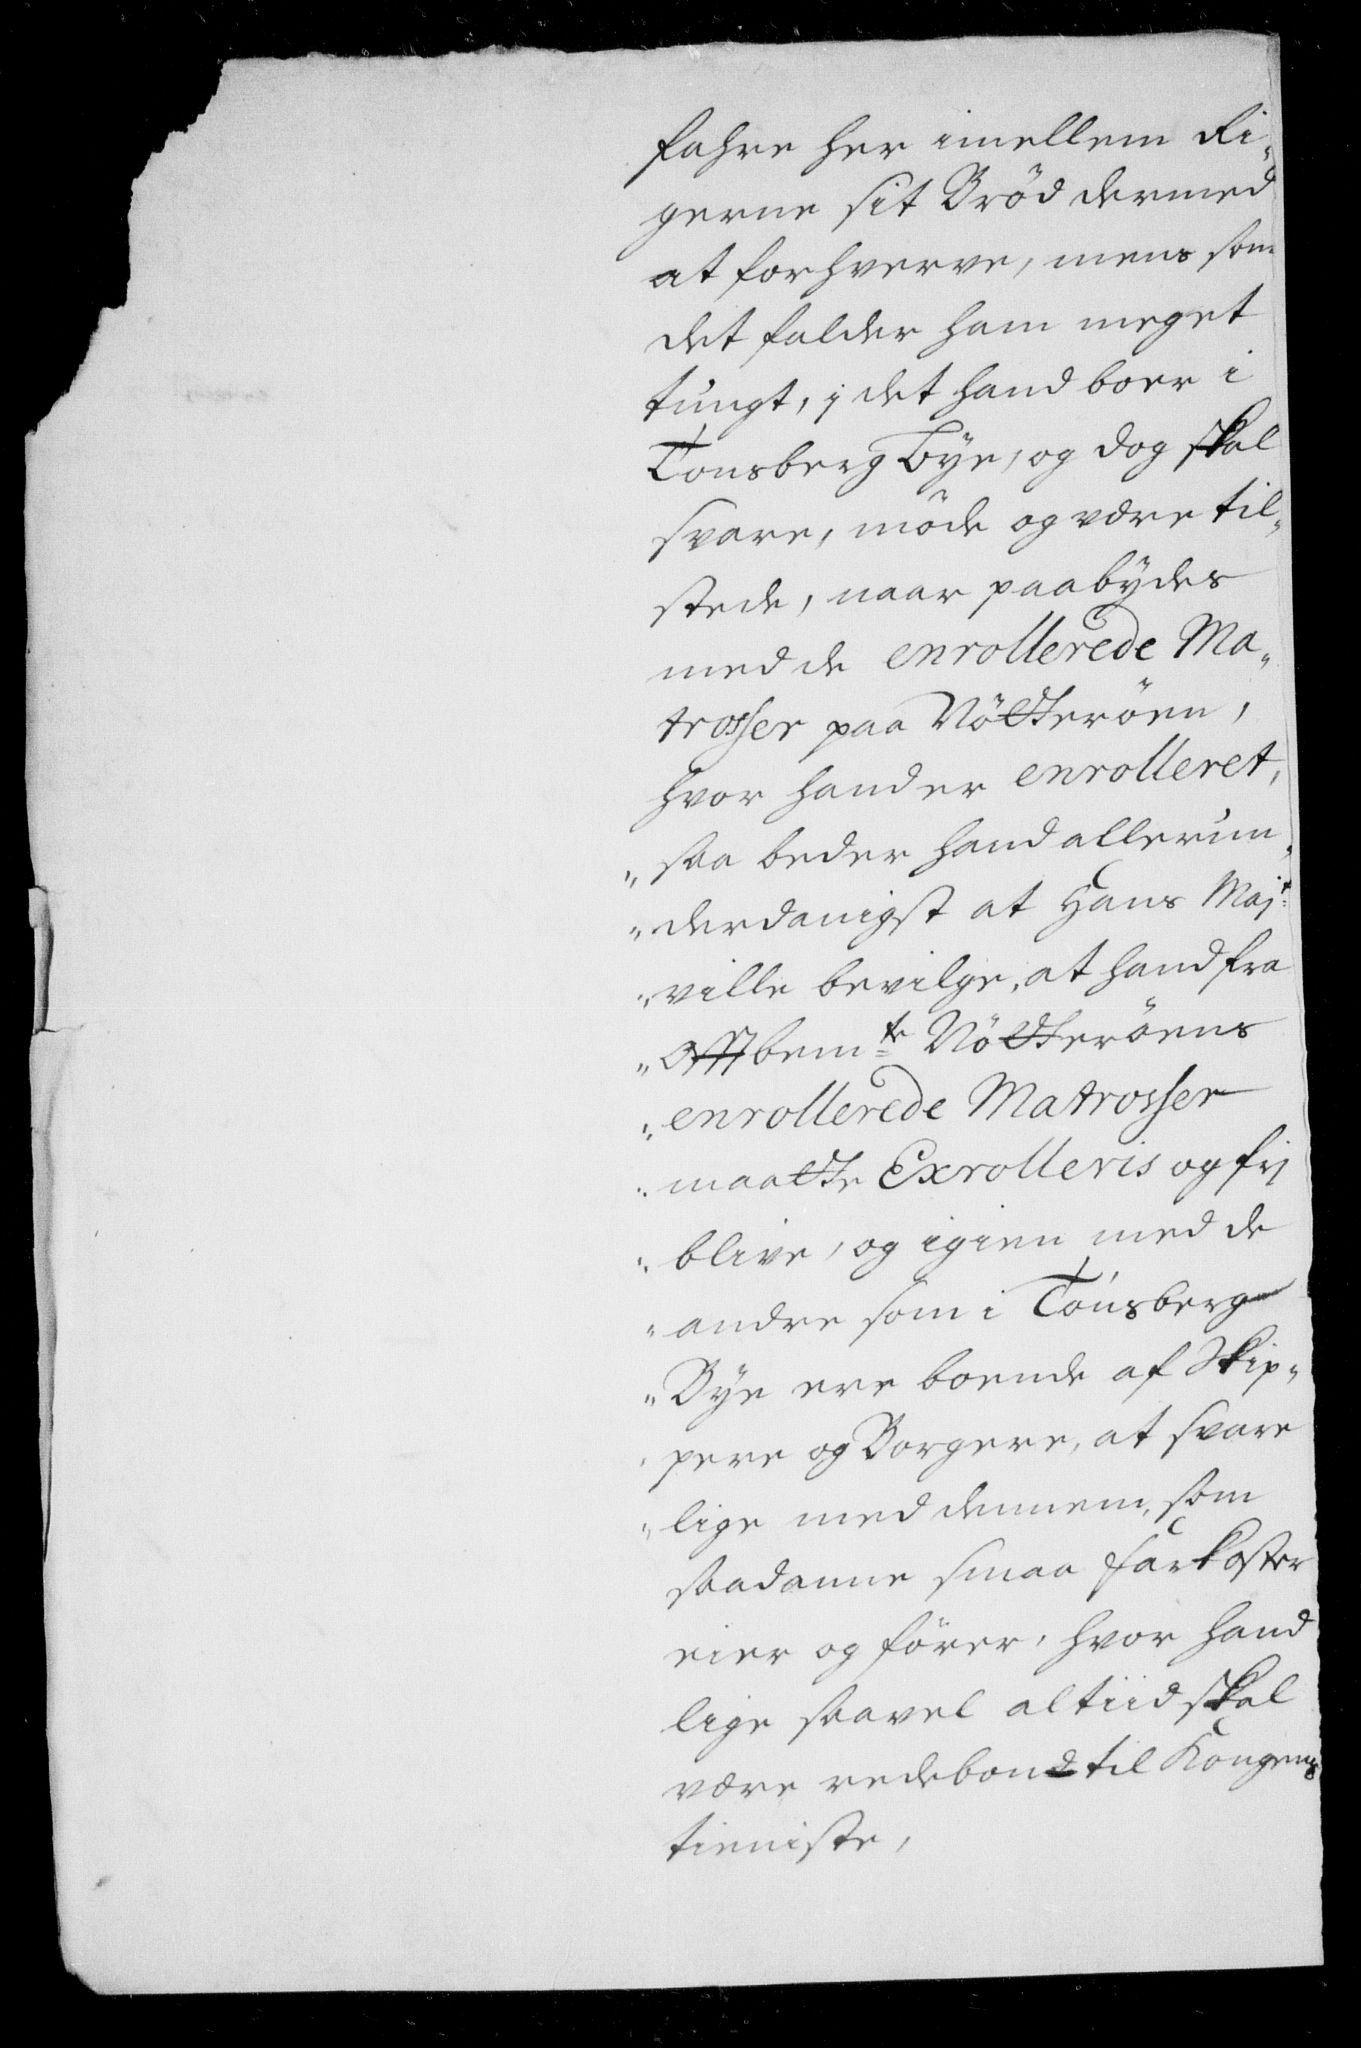 fahre her imellem Ri„
gerne sit Bröd dermed
at forhverve, mens som
det falder ham meget
tungt, i det hand boer i
Tonsberg bye, og dog skal
svare, möde og være til„
stede, naar paabydes
med de enrollerede Ma„
trosser paa Nötteröen,
hvor hand er enrolleret,
„ saa beder hand allerun„
„ derdanigst at Hans Majt:
„ ville bevilge, at hand fra
„ offbemte Nötteröens
„ enrollerede Matrosser
„ maatte Exrolleris og frj
„ blive, og igien med de
„ andre som i Tönsberg
„ Bye ere boende af Skip„
„ pere og Borgere, at svare
„ lige med dennem, som
saadanne smaa farkoster
eier og förer, hvor hand
lige saavel altiid skal
være redebond til Kongens
tieniste,